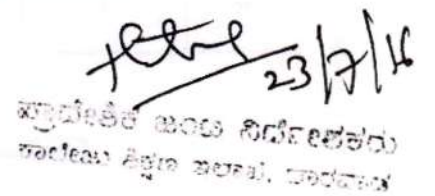 23/7/16
ಪ್ರಾದೇಶಿಕ ಜಂಟಿ ನಿರ್ದೇಶಕರು
ಕಾಲೇಜು ಶಿಕ್ಷಣ ಇಲಾಖೆ, ಧಾರವಾಡ